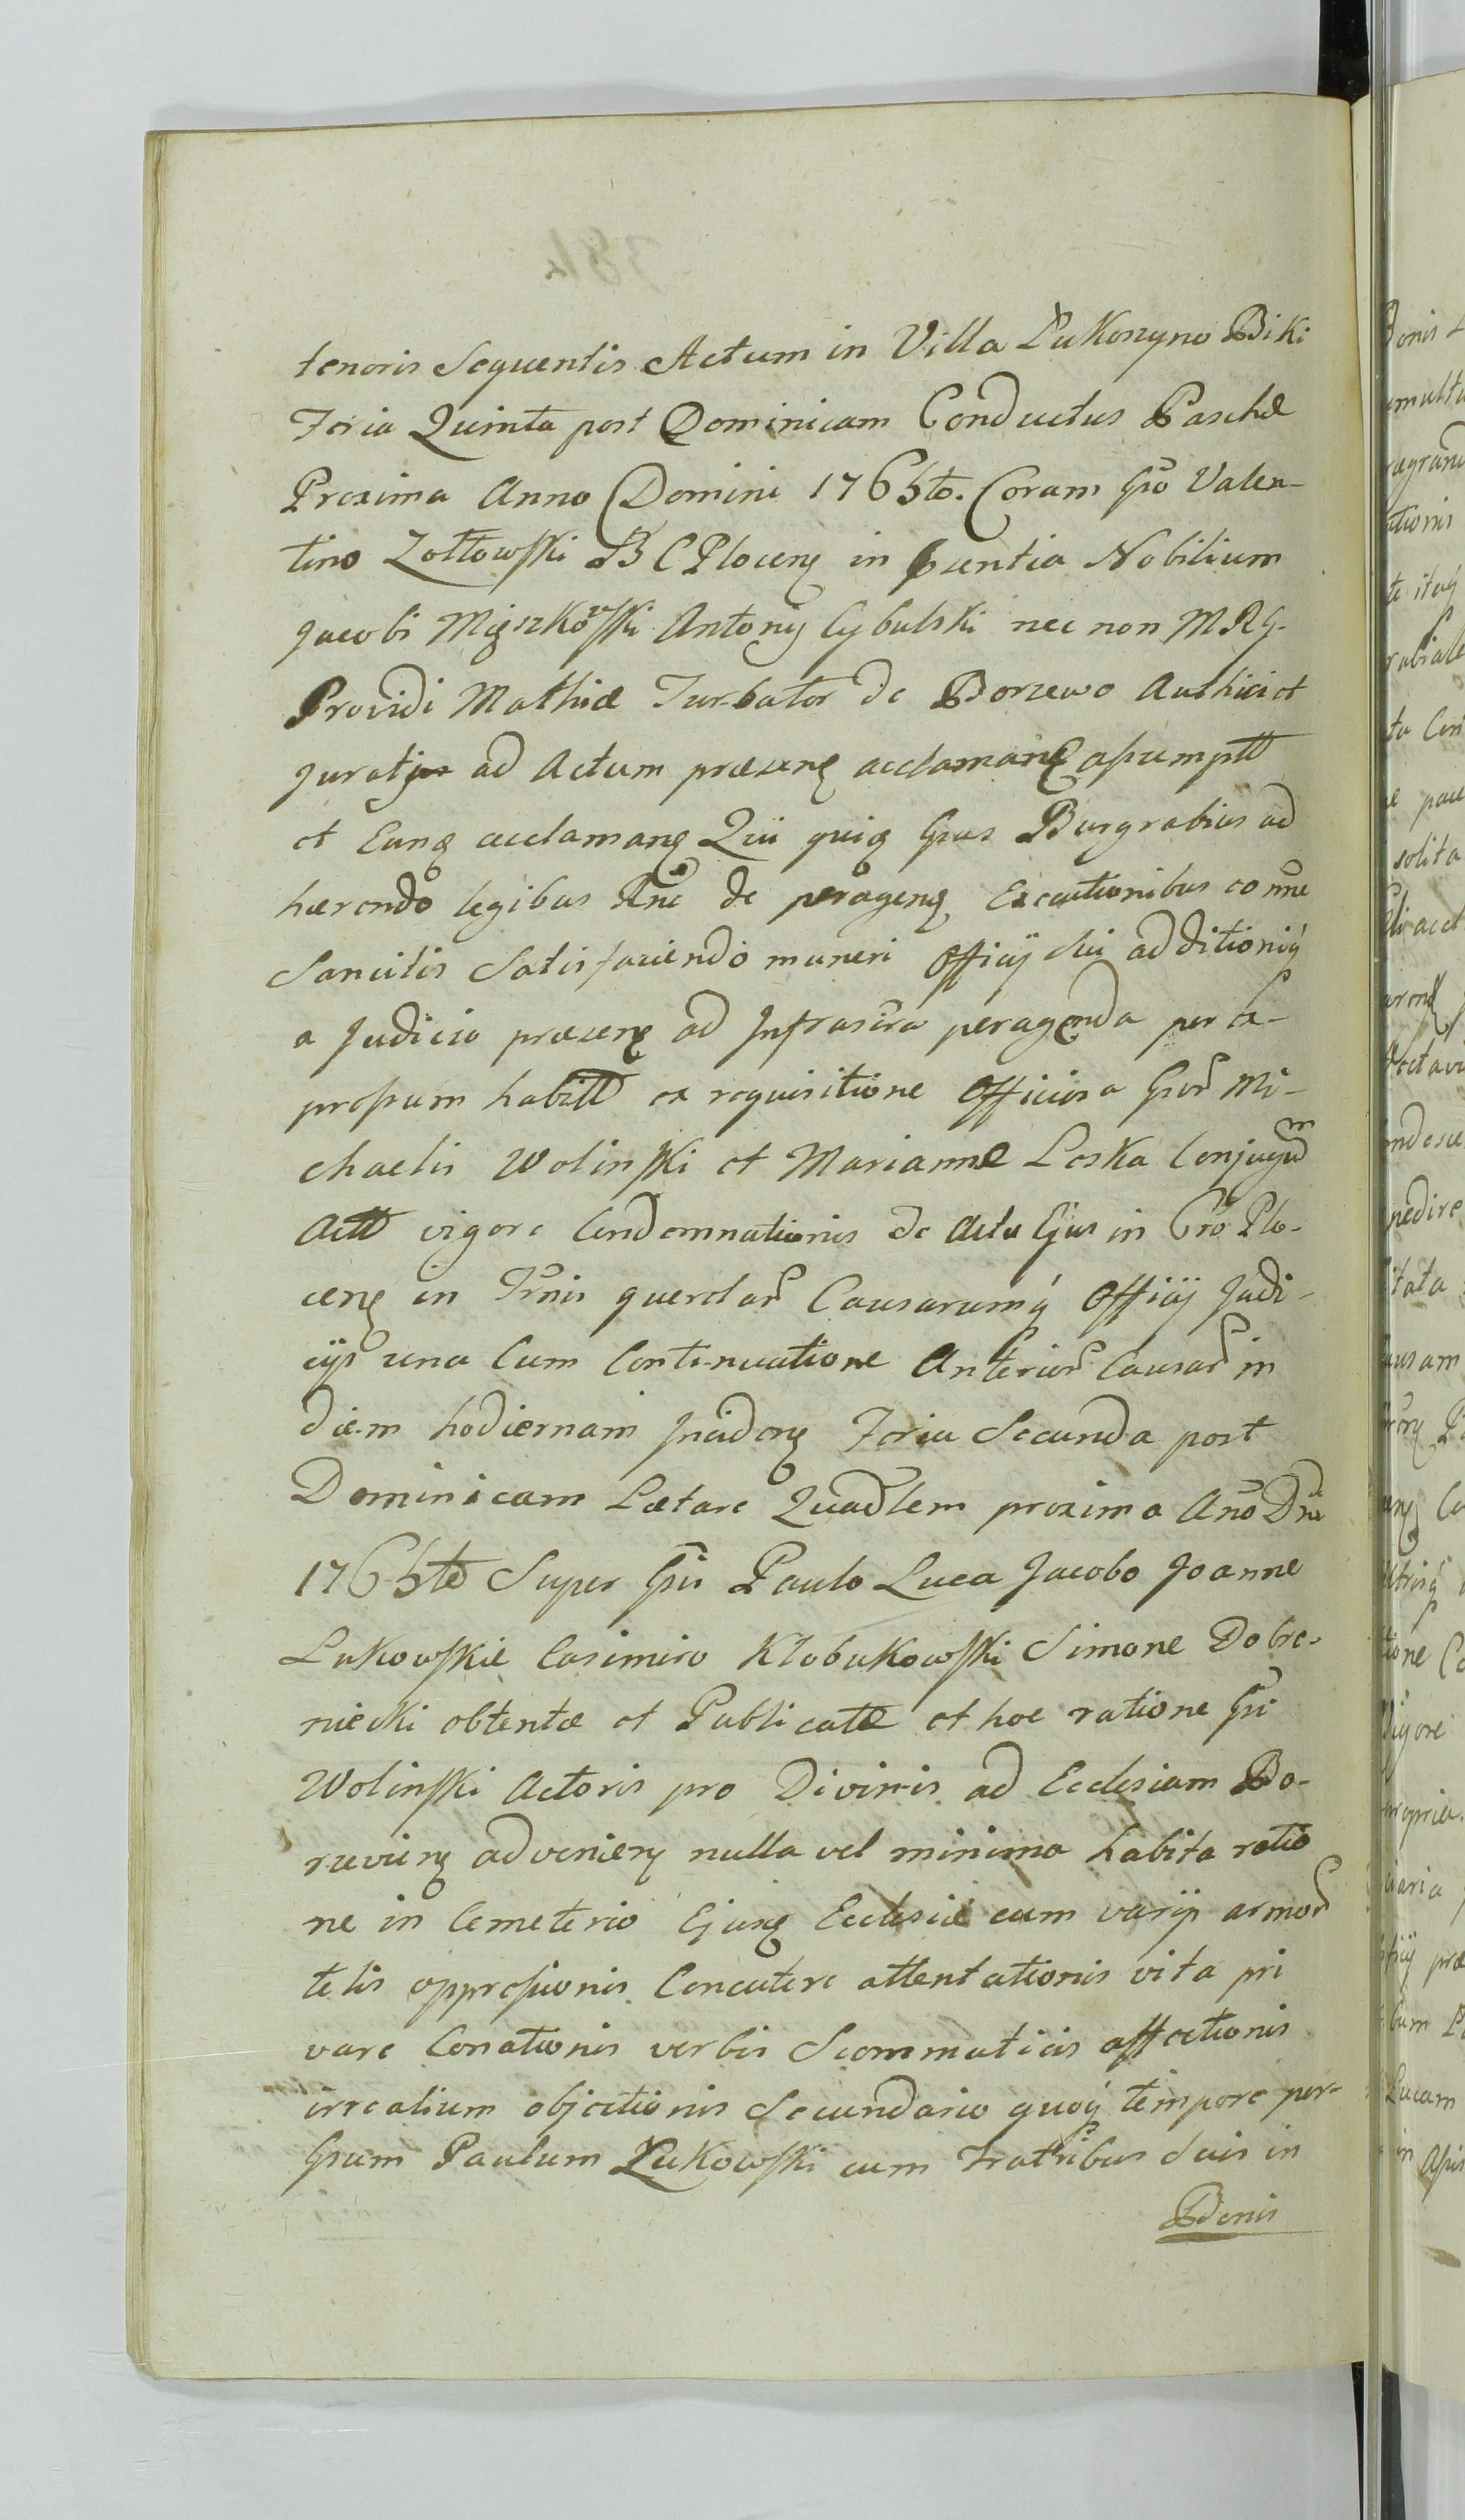 tenoris Sequentis Actum in Villa Łukoszyno Biki
Feria Quinta post Dominicam Conductus Paschæ
Proxima Anno Domini 1765to. Coram Gso Valen-
tino Zołtowski B C Plocens in Psentia Nobilium
Jacobi Mięszkowski Antonij Cybulski nec non MRG.
Providi Mathiæ Turbator de Borzewo Authici et
Jurati ad Actum præsens acclamans assumptt
et Eund acclamans Qui quid Gsus Burgrabius ad
hærendo legibus Rni de peragens Executionibus conne
Sancitis Satisfaciendo muneri Officij Sui additioniq
a Judicio præsens ad Infrascra peragenda per ex-
pressum habitt ex requisitione Officiosa Gsor Mi-
chaelis Wolinski et Mariannæ Leska Conjugum
Actt vigore Condemnationis de Actu Ejus in Cro Plo-
cens in Trnis querelar Causarumq Officij Judi-
cijs una Cum Continuatione Anterior Causar in
diem hodiernam Inciden Feria Secunda post
Dominicam Lætare Quadlem proxima Ano Dni
1765to Super Gsis Paulo Luca Jacobo Joanne
Łukowskie Casimiro Kłobukowski Simone Dobro-
niecki obtentæ et Publicatæ et hoc ratione Gsi
Wolinski Actoris pro Divinis ad Ecclesiam Bo-
rzeviens advenien nulla vel minima habita ratio
ne in Cemeterio Ejusd Ecclesiæ cum varijs armor
telis oppressionis Concutere attentationis vita pri
vare Conationis verbis Scommaticis affectionis
irrealium objectionis Secundario quoq tempore per
Gsum Paulum Łukowski cum Fratribus Suis in
Bonis